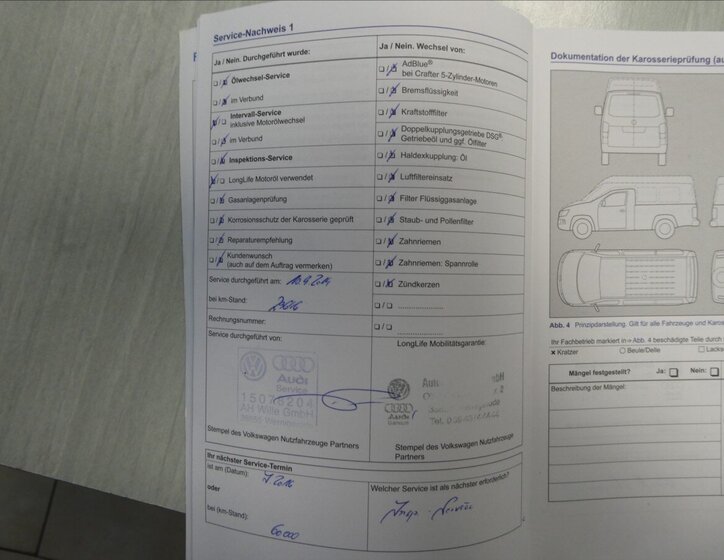 Service-Nachweis 1
Ja / Nein. Durchgeführt wurde:
☐ / ☒ Ölwechsel-Service
☐ / ☒ im Verbund
☒ / ☐ Intervall-Service
inklusive Motorölwechsel
☐ / ☒ im Verbund
☐ / ☒ Inspektions-Service
☒ / ☐ LongLife Motoröl verwendet
☐ / ☒ Gasanlagenprüfung
☐ / ☒ Korrosionsschutz der Karosserie geprüft
☐ / ☒ Reparaturempfehlung
☐ / ☒ Kundenwunsch
(auch auf dem Auftrag vermerken)
Service durchgeführt am:
bei km-Stand:
Rechnungsnummer:
Service durchgeführt von:
Audi
Service
15078204
AH Wille GmbH
Stempel des Volkswagen Nutzfahrzeuge Partners
Ja / Nein. Wechsel von:
☐ / ☒ AdBlue®
bei Crafter 5-Zylinder-Motoren
☐ / ☒ Bremsflüssigkeit
☐ / ☒ Kraftstofffilter
☐ / ☒ Doppelkupplungsgetriebe DSG®:
Getriebeöl und ggf. Ölfilter
☐ / ☒ Haldexkupplung: Öl
☐ / ☒ Luftfiltereinsatz
☐ / ☒ Filter Flüssiggasanlage
☐ / ☒ Staub- und Pollenfilter
☐ / ☒ Zahnriemen
☐ / ☒ Zahnriemen: Spannrolle
☐ / ☒ Zündkerzen
☐ / ☐ ....................
☐ / ☐ ....................
LongLife Mobilitätsgarantie:
Audi
Stempel des Volkswagen Nutzfahrzeuge
Partners
Ihr nächster Service-Termin
ist am (Datum):
oder
bei (km-Stand):
60000
Welcher Service ist als nächster erforderlich?
Insp. - Service
Dokumentation der Karosserieprüfung (au
Abb. 4 Prinzipdarstellung. Gilt für alle Fahrzeuge und Karos
Ihr Fachbetrieb markiert in ⇒ Abb. 4 beschädigte Teile durch
x Kratzer ○ Beule/Delle ☐ Lacks
Mängel festgestellt? Ja: ☐ Nein: ☐
Beschreibung der Mängel: